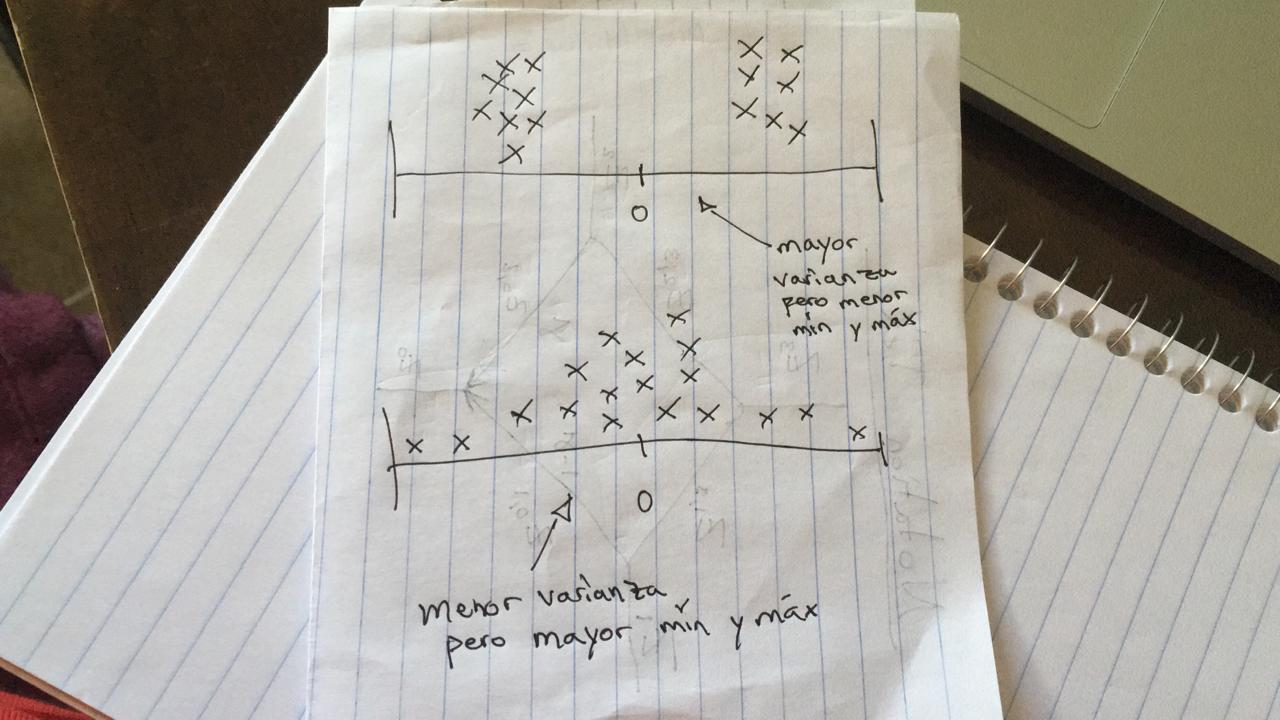 0
mayor
varianza
pero menor
mín y máx
0
Menor varianza
pero mayor mín y máx